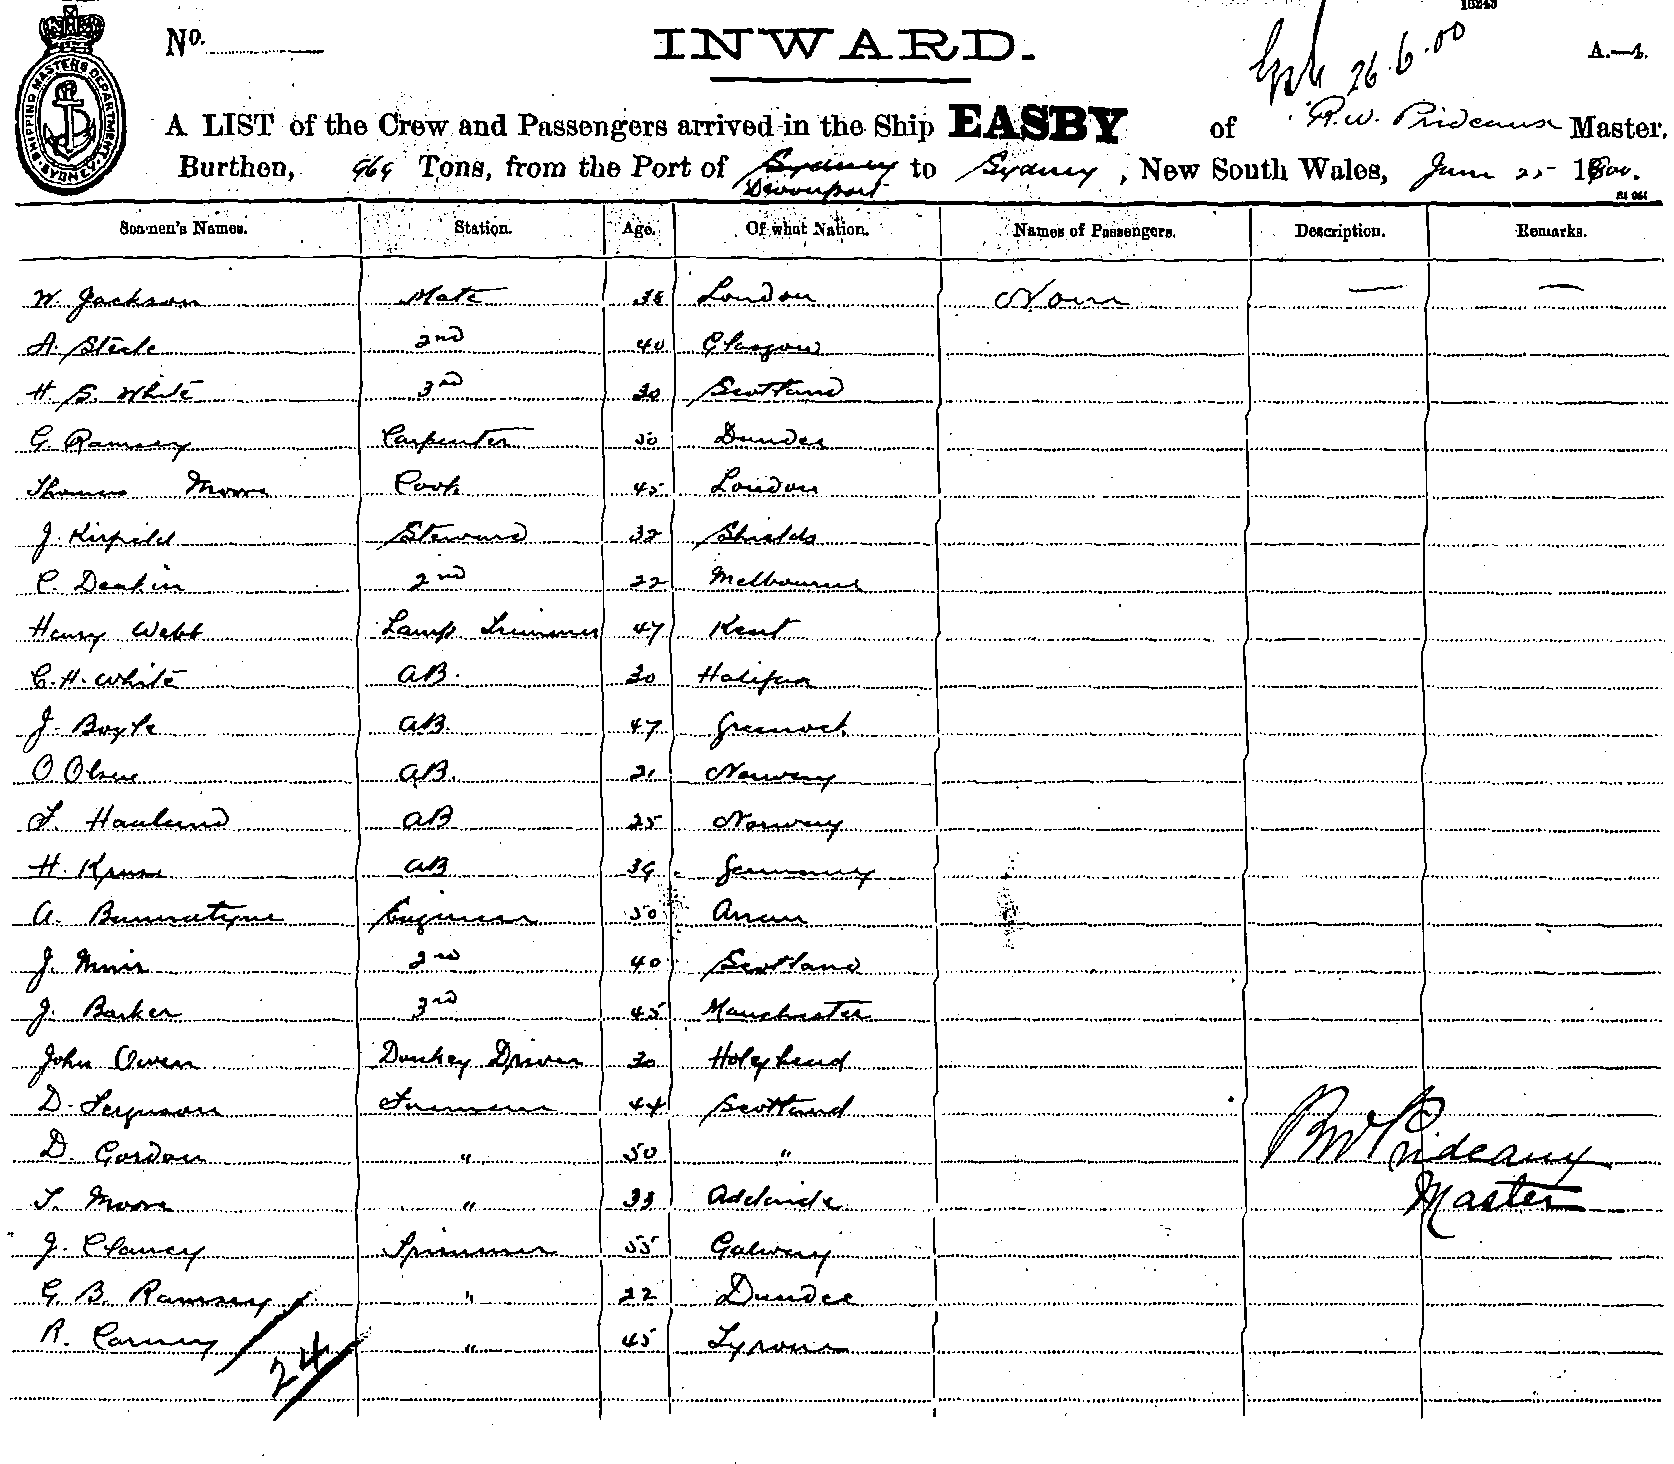 No.
INWARD.
26.6.00
A.—4.
SHIPPING MASTERS DEPARTMENT SYDNEY
A LIST of the Crew and Passengers arrived in the Ship EASBY of R. W. Prideaux Master,
Burthen, 969 Tons, from the Port of Sydney Devonport to Sydney, New South Wales, June 25 1900.
Seamen's Names. Station. Age. Of what Nation. Names of Passengers. Description. Remarks.
W. Jackson Mate 38 London None — —
A. Steele 2nd 40 Glasgow
H. S. White 3rd 30 Scotland
G. Ramsey Carpenter 50 Dundee
Thomas Moore Cook 45 London
J. Steward 32 Shields
C. Deakin 2nd 22 Melbourne
Henry Webb Lamp Trimmer 47 Kent
C. H. White AB. 30 Halifax
J. Boyle AB. 47 Greenock
O Olsen AB. 21 Norway
Haulund AB 25 Norway
H. Kruse AB 39 Germany
A. Bannatyne Engineer 50 Arran
J. Muir 2nd 40 Scotland
J. Barker 3rd 45 Manchester
John Owen Donkey Driver 30 Holyhead
D. Ferguson Fireman 44 Scotland
D. Gordon " 50 "
T. Moore " 33 Adelaide
J. Clancy Trimmer 55 Galway
G. B. Ramsey " 22 Dundee
R. Carney " 45 Tyrone
24
RW Prideaux
Master